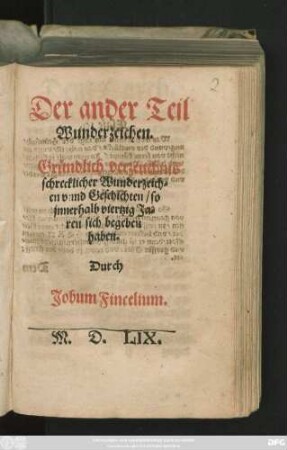 2
Der ander Teil
Wunderzeichen.
Gründlich verzeichnis
schrecklicher Wunderzeich-
en vnd Geschichten / so
innerhalb viertzig Ja-
ren sich begeben
haben.
Durch
Jobum Fincelium.
M. D. LIX.